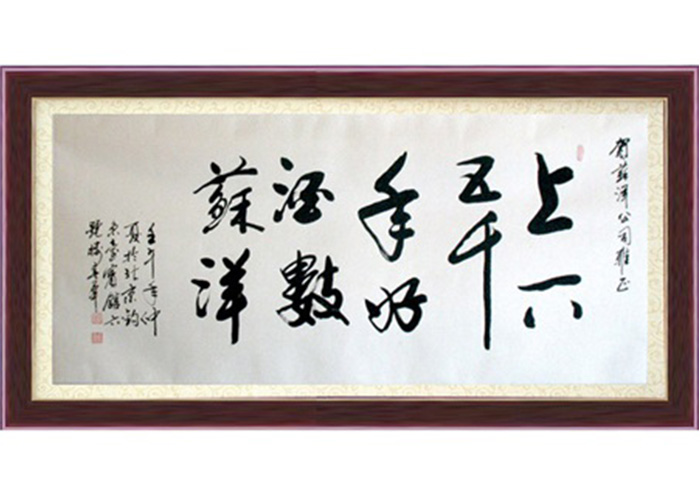 賀蘇洋公司雅正
上下
五千
年好
酒數
蘇洋
壬午年仲
夏於北京釣
魚臺賓館六
號樓